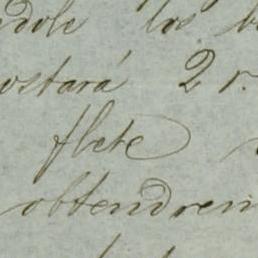 ndole los b
ostará 2 r.
flete
obtendrem